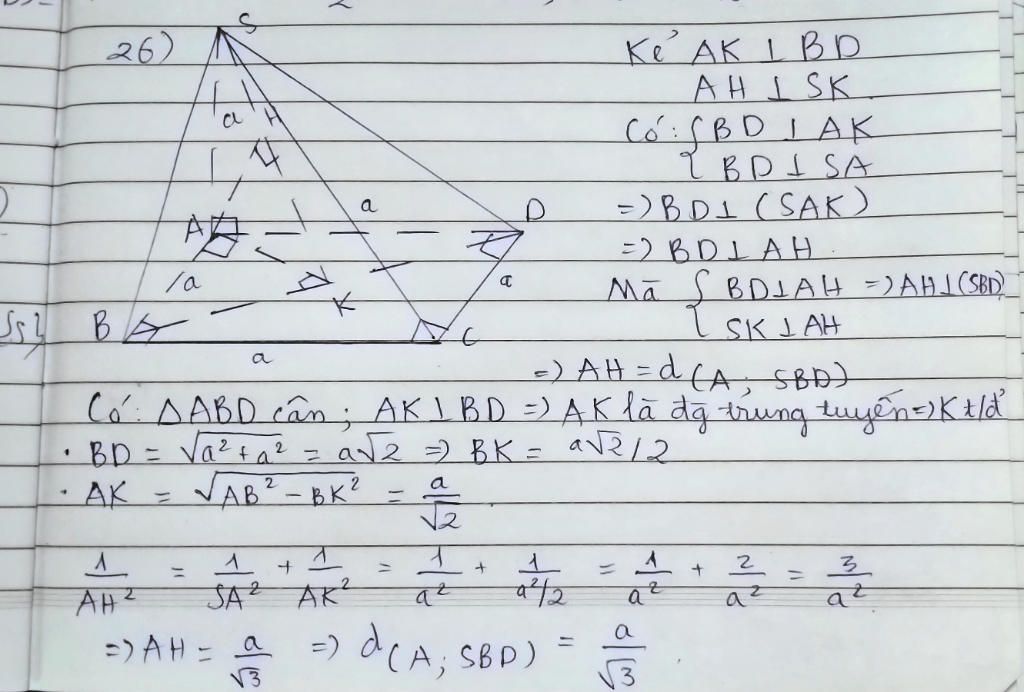 26)
S
a
H
A
a
D
a
a
K
B
C
a
Kẻ AK ⊥ BD
AH ⊥ SK
Có: { BD ⊥ AK
{ BD ⊥ SA
=> BD ⊥ (SAK)
=> BD ⊥ AH.
Mà { BD ⊥ AH => AH ⊥ (SBD)
{ SK ⊥ AH
=> AH = d(A; SBD)
Có: ΔABD cân; AK ⊥ BD => AK là đg trung tuyến => K t/đ
• BD = √(a² + a²) = a√2 => BK = a√2/2
• AK = √(AB² - BK²) = a/√2.
1/AH² = 1/SA² + 1/AK² = 1/a² + 1/(a²/2) = 1/a² + 2/a² = 3/a².
=> AH = a/√3 => d(A; SBD) = a/√3.